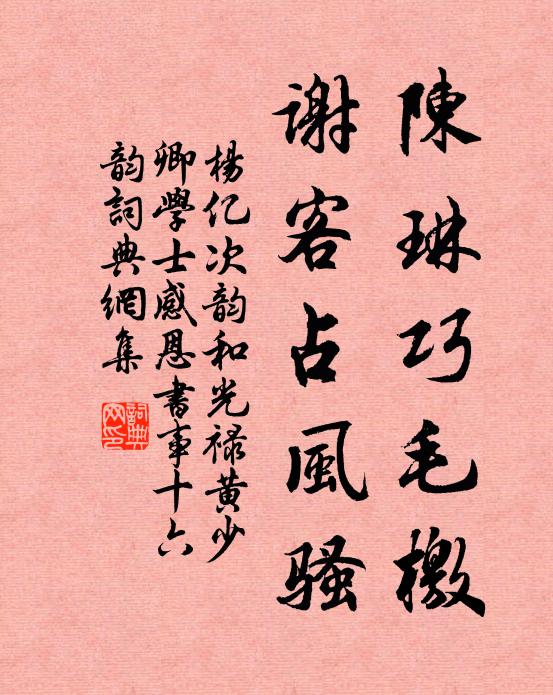 陳琳巧毛檄
謝客占風騷
楊亿次韵和光禄黄少
卿學士感恩書事十六
韵詞典網集
詞典網印